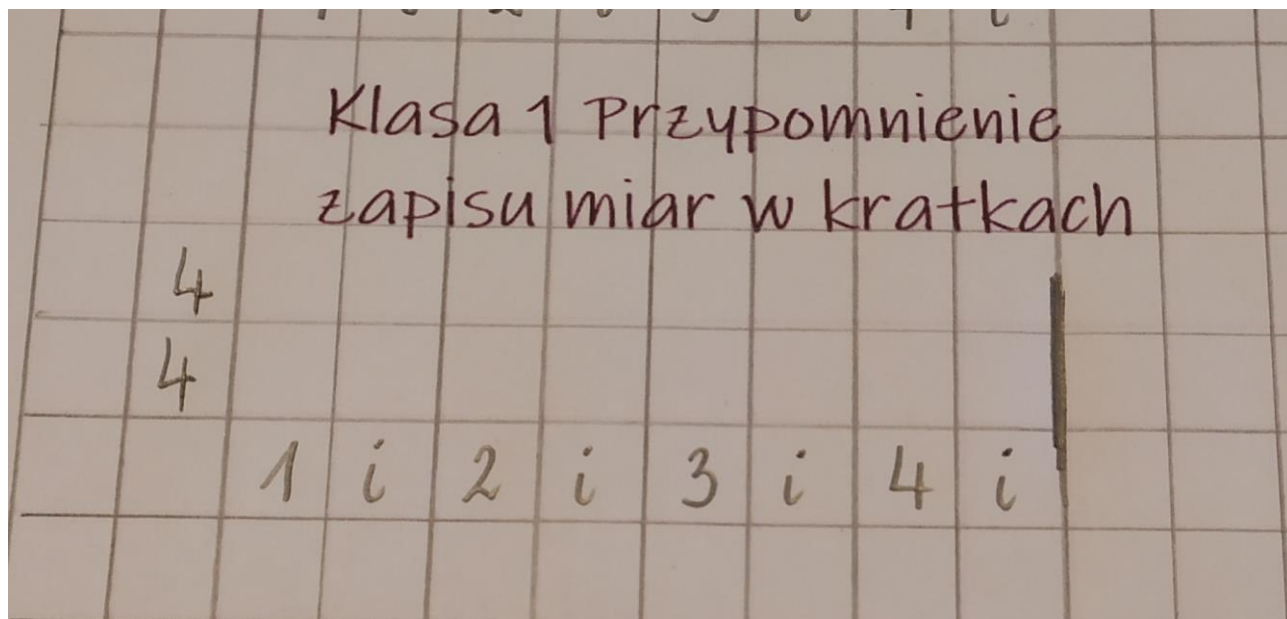 Klasa 1 Przypomnienie
zapisu miar w kratkach
4
4
1 i 2 i 3 i 4 i